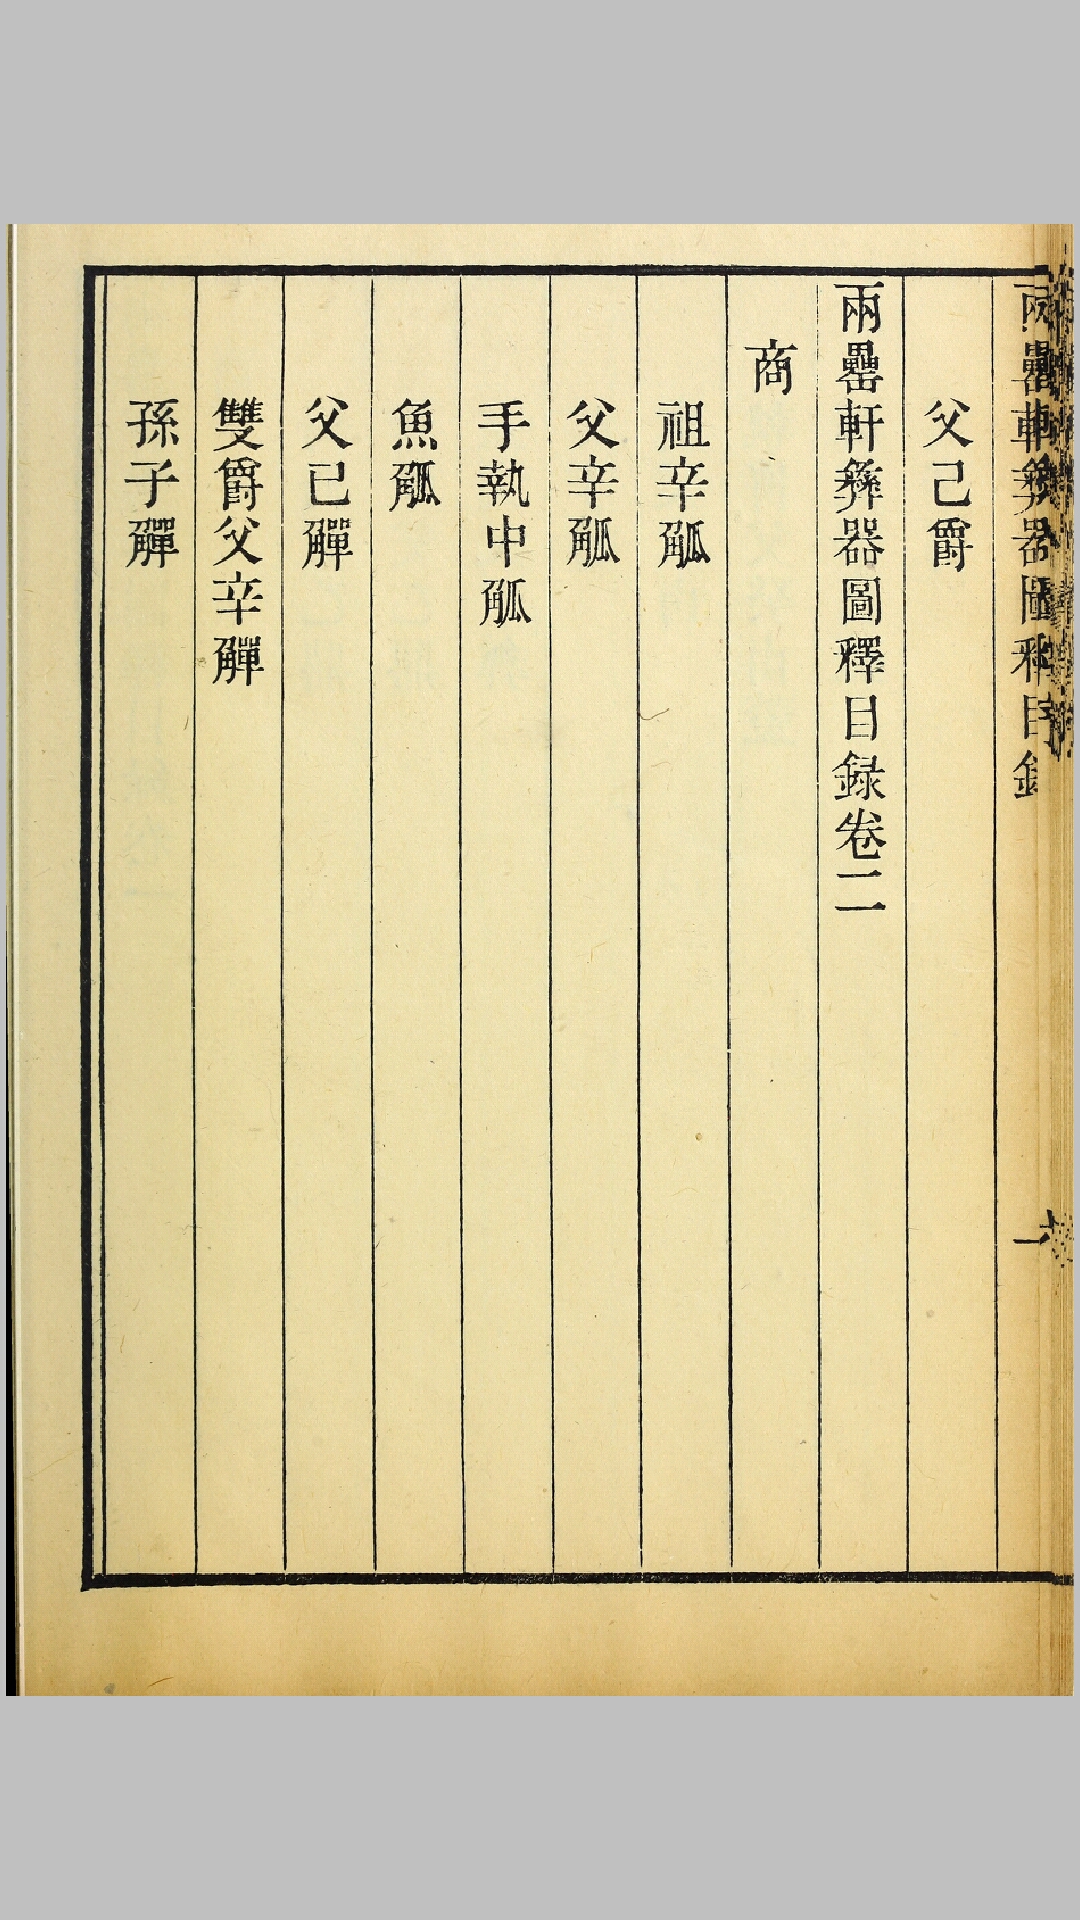 兩罍軒彝器圖釋目錄
父己爵
兩罍軒彝器圖釋目録卷二
商
祖辛觚
父辛觚
手執中觚
魚觚
父已觶
雙爵父辛觶
孫子觶